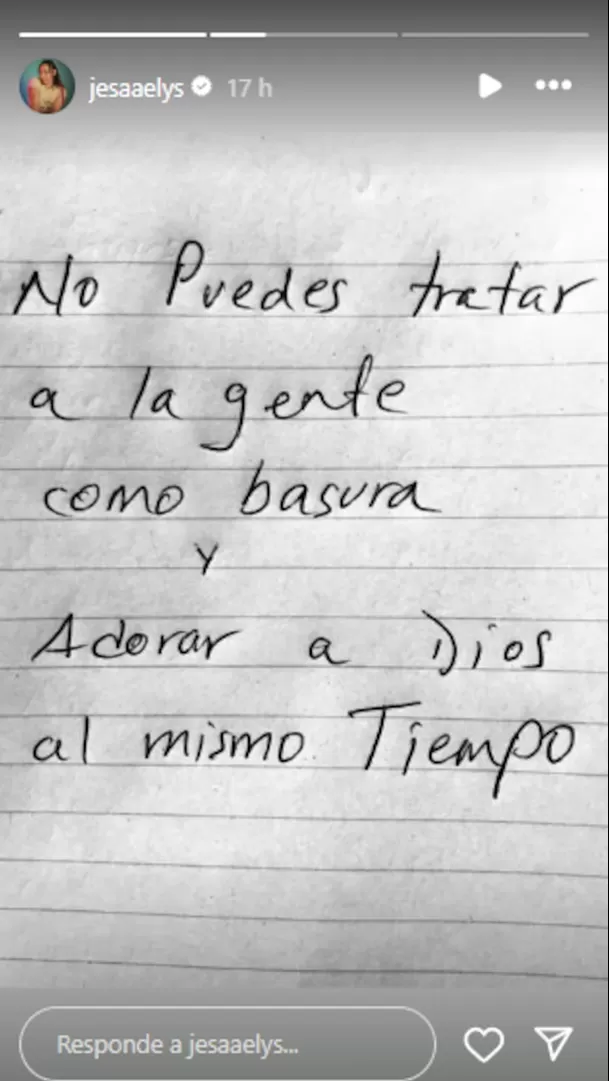 jesaaelys 17 h
No Puedes tratar
a la gente
como basura
y
Adorar a Dios
al mismo Tiempo
Responde a jesaaelys...